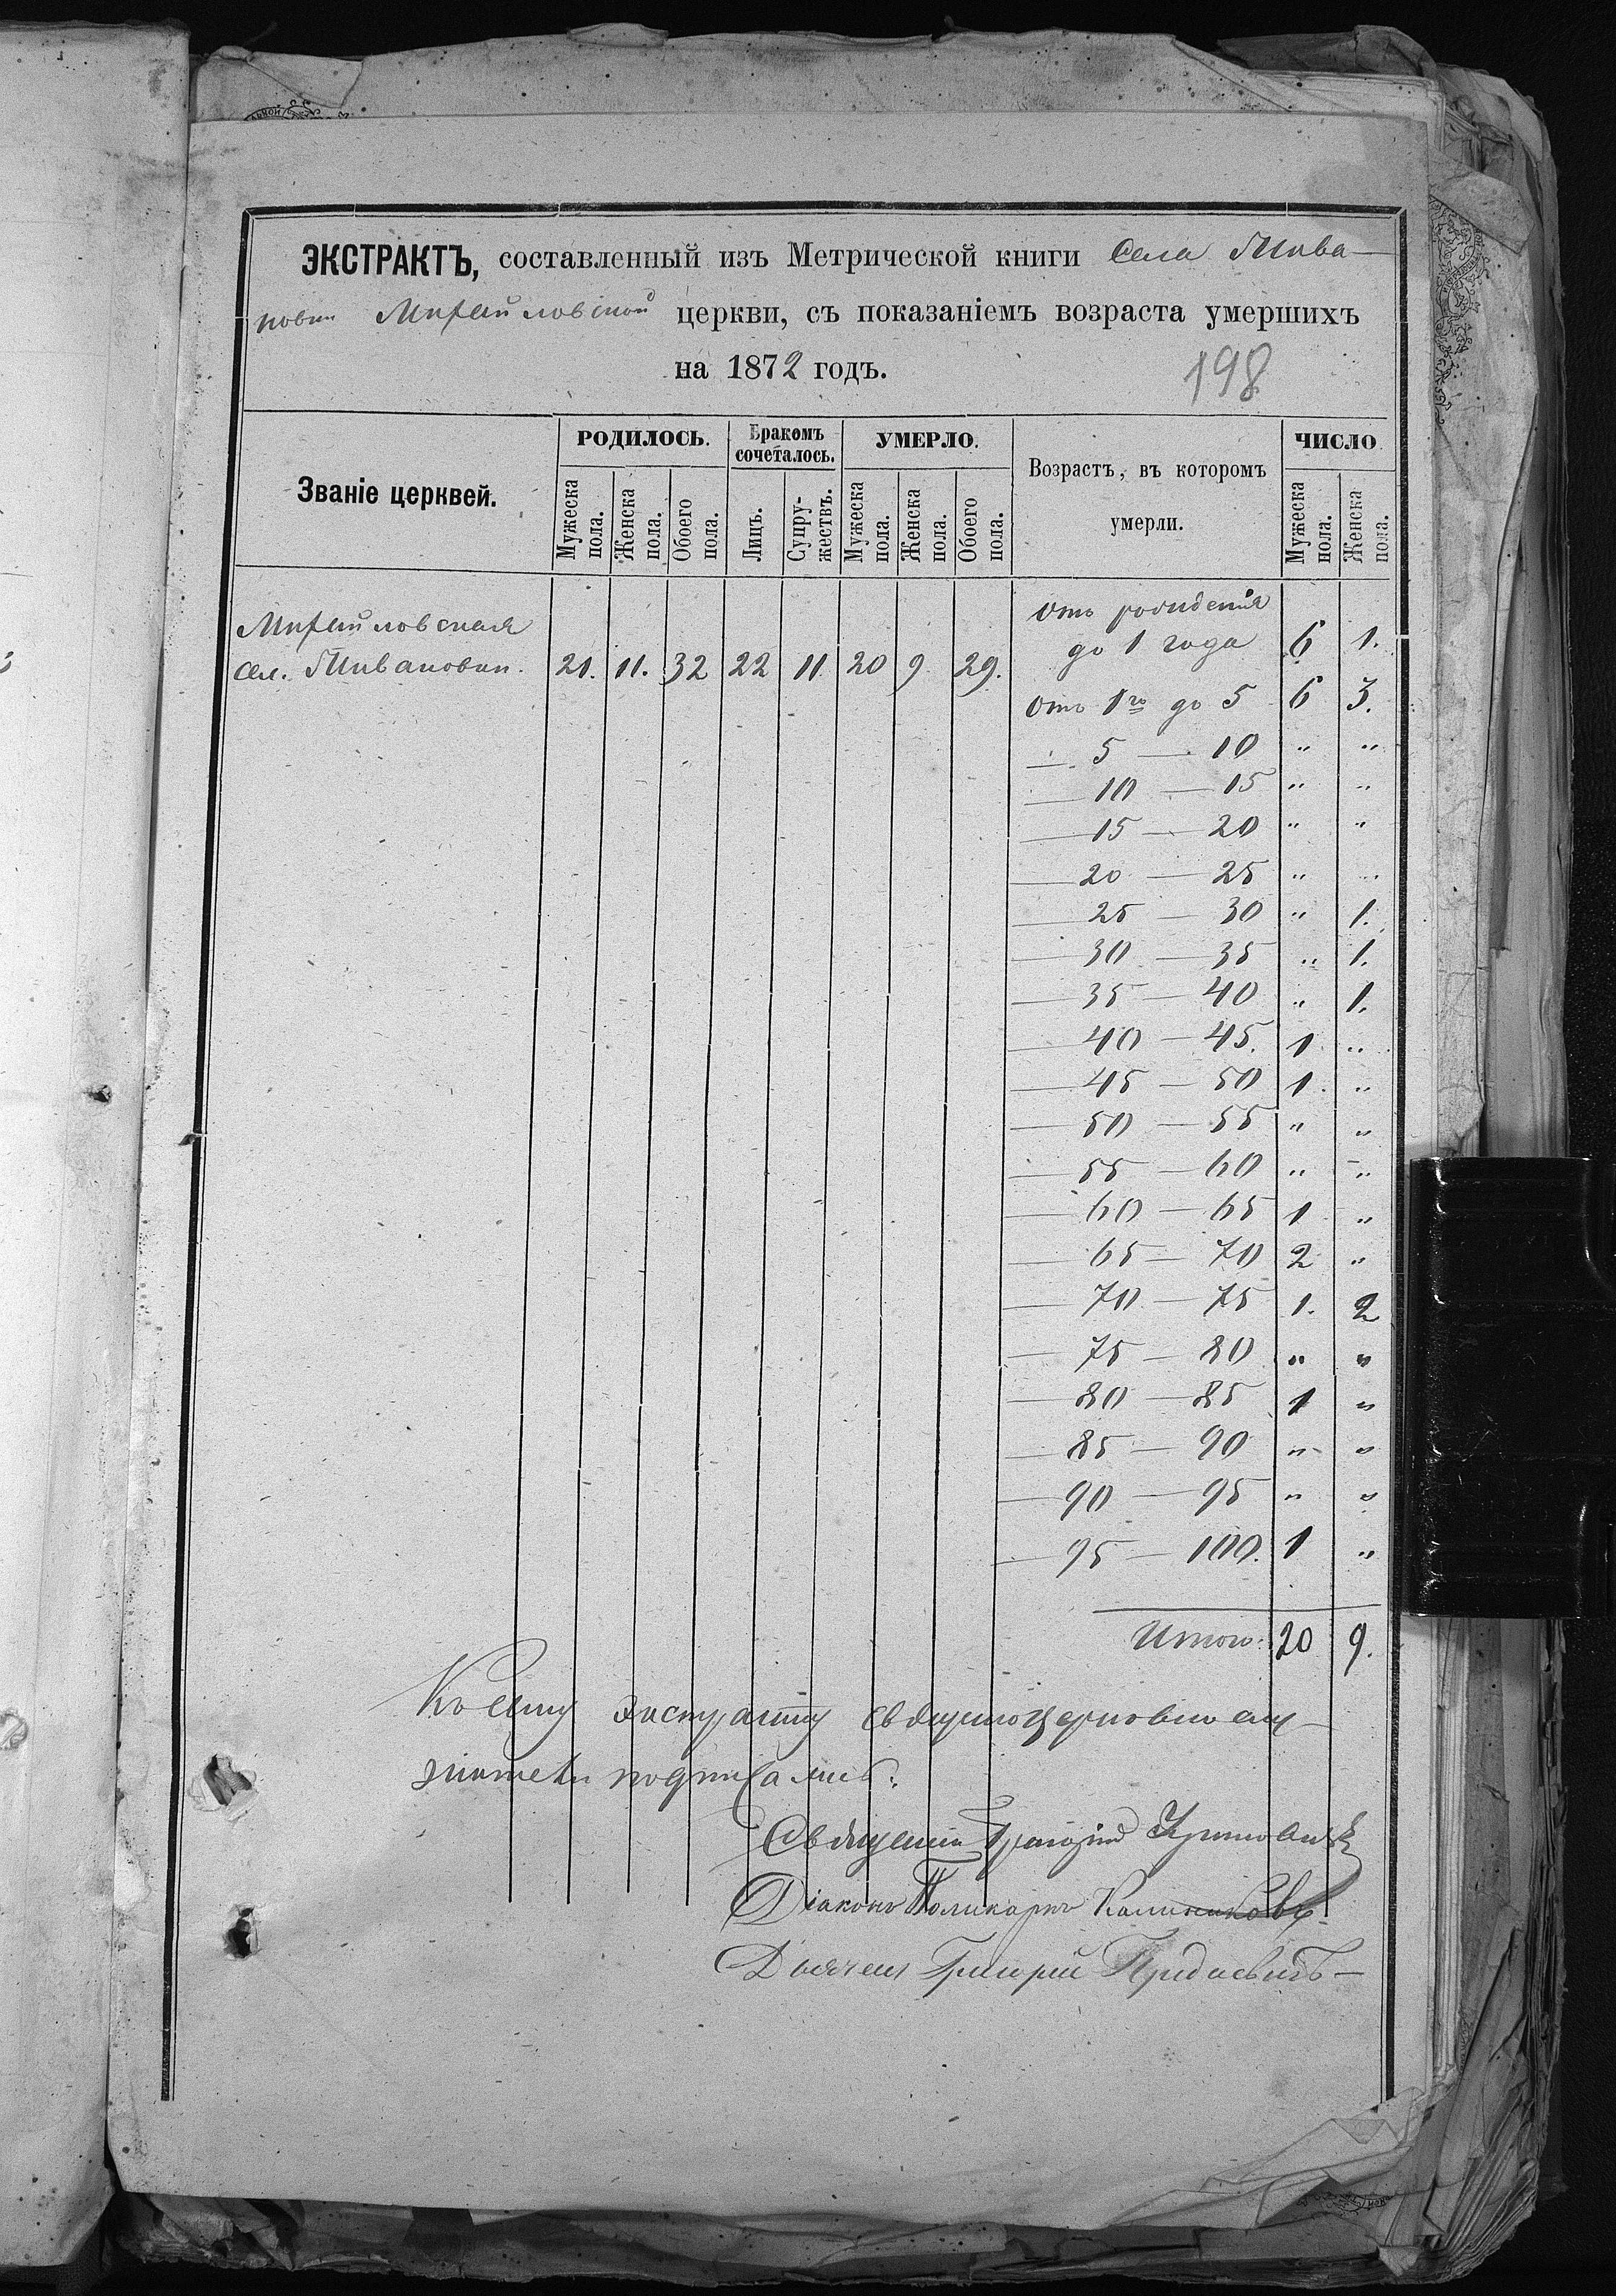 ЭКСТРАКТЪ, составленный изъ Метрической книги Села Пива-
новки Михайловской церкви, съ показаніемъ возраста умершихъ
на 1872 годъ.
198
Званіе церквей.
РОДИЛОСЬ.
Мужеска пола.
Женска пола.
Обоего пола.
Бракомъ сочеталось.
Лицъ.
Супружествъ.
УМЕРЛО.
Мужеска пола.
Женска пола.
Обоего пола.
Возрастъ, въ которомъ
умерли.
ЧИСЛО
Мужеска пола.
Женска пола.
Михайловская
сел. 21. 11. 32 22 11 20 9 29.
отъ рожденія
до 1 года 6 1.
отъ 1го до 5 6 3.
— 5 — 10 " "
— 10 — 15 " "
— 15 — 20 " "
— 20 — 25 " "
— 25 — 30 " 1.
— 30 — 35 " 1.
— 35 — 40 " 1.
— 40 — 45. 1 "
— 45 — 50 1 "
— 50 — 55 " "
— 55 — 60 " "
— 60 — 65 1 "
— 65 — 70 2 "
— 70 — 75 1. 2
— 75 — 80 " "
— 80 — 85 1 "
— 85 — 90 " "
— 90 — 95 " "
— 95 — 100. 1 "
Итого: 20 9.
Къ сему экстракту священноцерковнослу-
жители подписались:
Священникъ
Діаконъ Поликарпъ
Дьячекъ Григорій